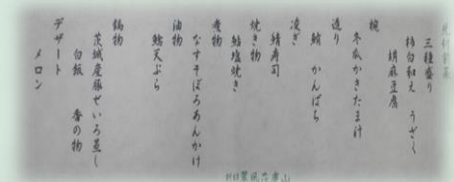 三種盛り
柿白和え うざく
胡麻豆腐
椀
冬瓜かきたま汁
造り
鯛 かんぱち
凌ぎ
鯖寿司
焼き物
鮎塩焼き
煮物
なすそぼろあんかけ
油物
鱚天ぷら
鍋物
茨城産豚せいろ蒸し
白飯 香の物
デザート
メロン